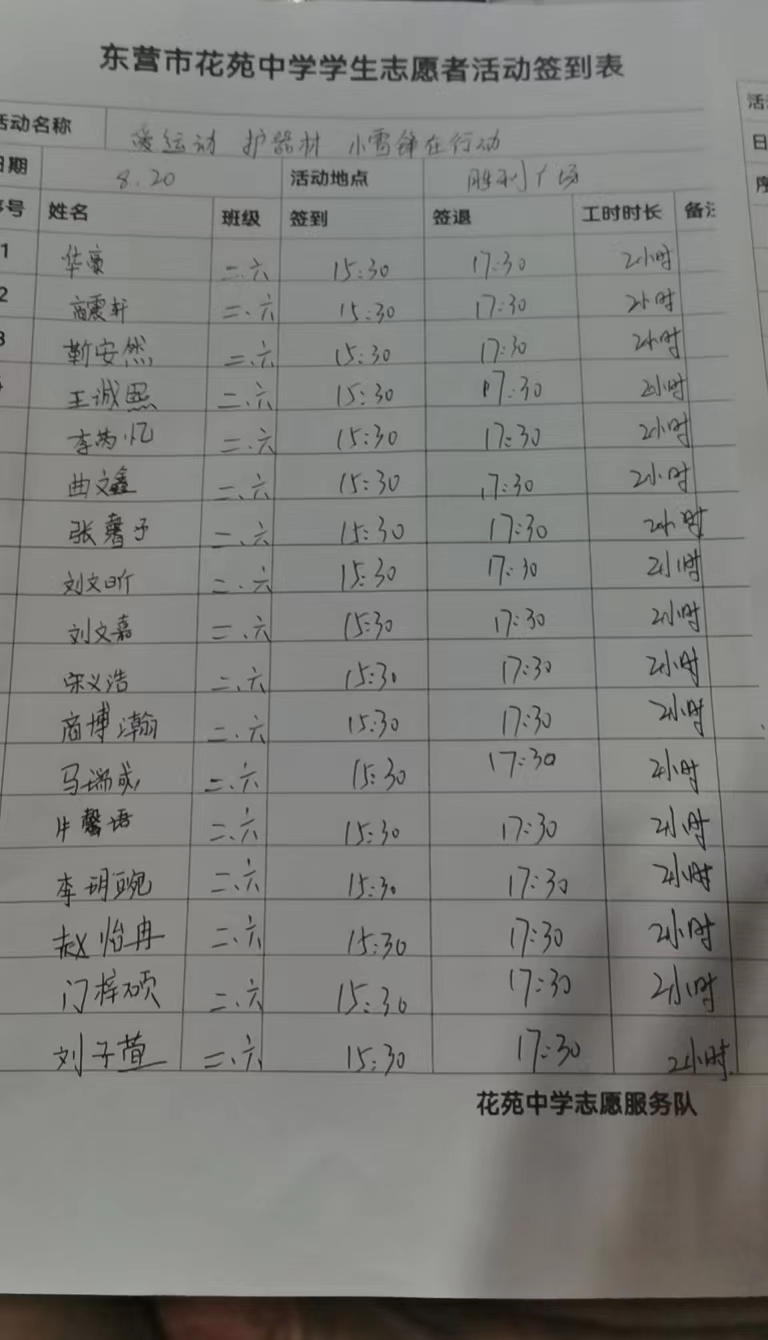 东营市花苑中学学生志愿者活动签到表
活动名称 爱运动 护器材 小雷锋在行动
日期 8.20 活动地点 胜利广场
序号 姓名 班级 签到 签退 工时时长 备注
1 华豪 二.六 15:30 17:30 2小时
2 商震轩 二.六 15:30 17:30 2小时
3 靳安然 二.六 15:30 17:30 2小时
王诚熙 二.六 15:30 17:30 2小时
李芮忆 二.六 15:30 17:30 2小时
曲文鑫 二.六 15:30 17:30 2小时
张馨予 二.六 15:30 17:30 2小时
刘文昕 二.六 15:30 17:30 2小时
刘文嘉 二.六 15:30 17:30 2小时
宋义浩 二.六 15:30 17:30 2小时
商博瀚 二.六 15:30 17:30 2小时
马瑞成 二.六 15:30 17:30 2小时
牛馨语 二.六 15:30 17:30 2小时
李玥豌 二.六 15:30 17:30 2小时
赵怡冉 二.六 15:30 17:30 2小时
门梓硕 二.六 15:30 17:30 2小时
刘子萱 二.六 15:30 17:30 2小时
花苑中学志愿服务队